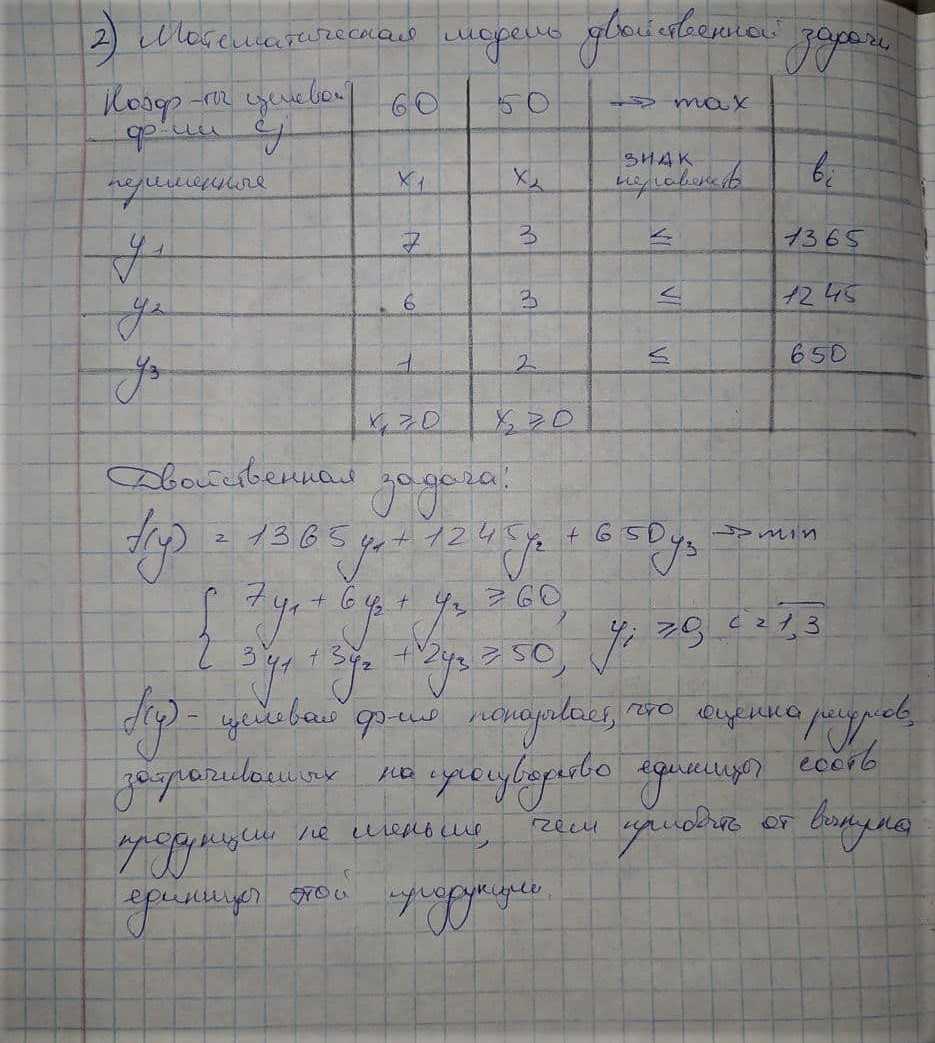 2) Математическая модель двойственной задачи
Коэф-ты целевой ф-ии cj 60 50 → max
переменные x1 x2 знак неравенств bi
y1 7 3 ≤ 1365
y2 6 3 ≤ 1245
y3 1 2 ≤ 650
x1 ≥ 0 x2 ≥ 0
Двойственная задача:
f(y) = 1365y1 + 1245y2 + 650y3 → min
7y1 + 6y2 + y3 ≥ 60,
3y1 + 3y2 + 2y3 ≥ 50, yi ≥ 0, i = 1,3
f(y) - целевая ф-ия показывает, что оценка ресурсов,
затрачиваемых на производство единицы соотв
продукции не меньше, чем прибыль от выпуска
единицы этой продукции.